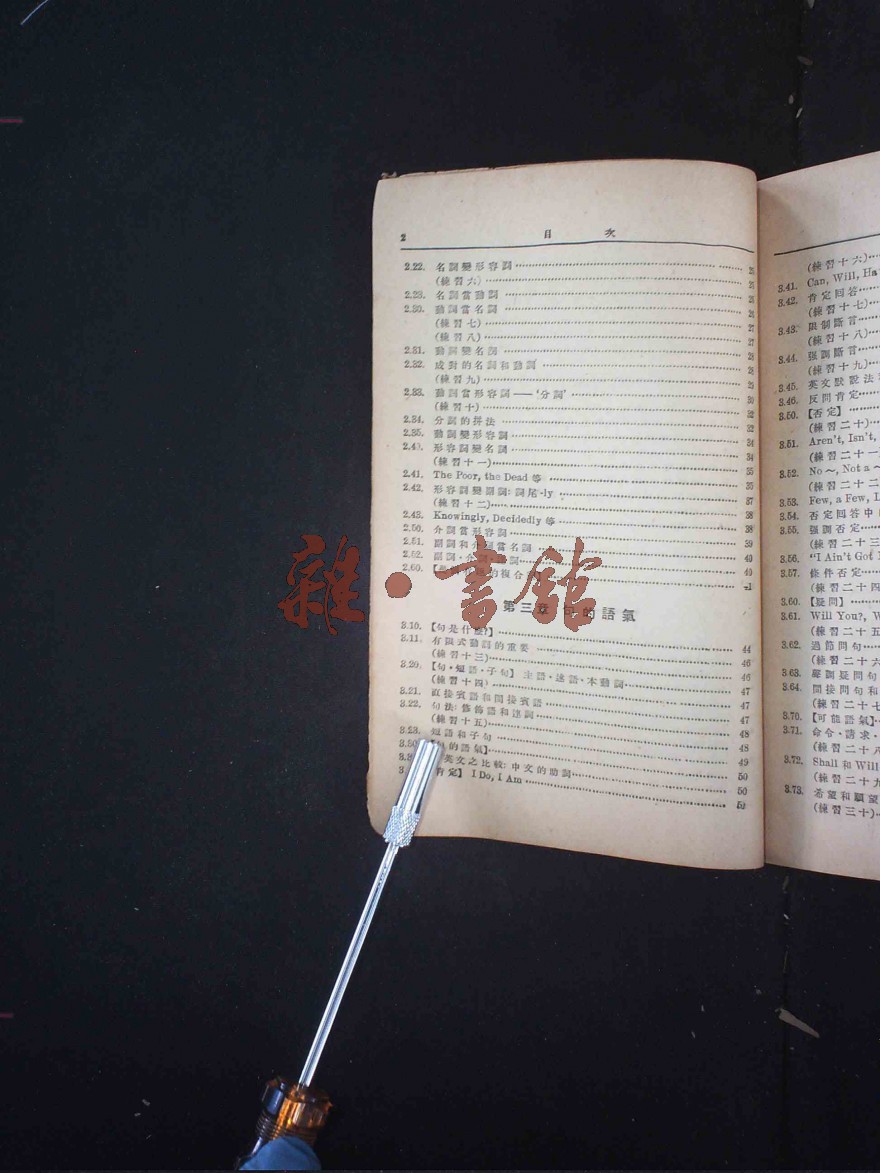 2 目 次
2.22. 名詞變形容詞 25
(練習六) 25
2.23. 名詞當動詞 25
2.30. 動詞當名詞 26
(練習七) 27
(練習八) 27
2.31. 動詞變名詞 28
2.32. 成對的名詞和動詞 28
(練習九) 29
2.33. 動詞當形容詞——‘分詞’ 30
(練習十) 32
2.34. 分詞的拼法 32
2.35. 動詞變形容詞 34
2.40. 形容詞變名詞 34
(練習十一) 35
2.41. The Poor, the Dead 等 35
2.42. 形容詞變副詞: 詞尾-ly 37
(練習十二) 38
2.43. Knowingly, Decidedly 等 38
2.50. 介詞當形容詞 38
2.51. 副詞和介詞當名詞 39
2.52. 副詞·介詞 40
2.60. 的複合 40
41
第三章 句的語氣
3.10. 【句是什麼?】 44
3.11. 有限式動詞的重要 46
(練習十三) 46
3.20. 【句·短語·子句】 主語·述語·本動詞 47
(練習十四) 47
3.21. 直接賓語和間接賓語 47
3.22. 句法: 修飾語和述詞 48
(練習十五) 48
3.23. 短語和子句 49
的語氣】 50
英文之比較: 中文的助詞 50
肯定】 I Do, I Am 52
(練習十六)
3.41. Can, Will, Ha
3.42. 肯定回答
(練習十七)
3.43. 限制斷言
(練習十八)
3.44. 强調斷言
(練習十九)
3.45. 英文默說法
3.46. 反問肯定
3.50. 【否定】
(練習二十)
3.51. Aren't, Isn't,
(練習二十一
3.52. No ~, Not a ~
(練習二十二
3.53. Few, a Few, L
3.54. 否定回答中
3.55. 强調否定
(練習二十三
3.56. “I Ain't Got
3.57. 條件否定
(練習二十四
3.60. 【疑問】
3.61. Will You?, W
(練習二十五
3.62. 過節問句
(練習二十六
3.63. 解調疑問句
3.64. 間接問句和
(練習二十七
3.70. 【可能語氣】
3.71. 命令·請求·
(練習二十八
3.72. Shall 和 Will
(練習二十九
3.73. 希望和願望
(練習三十)
雜·書館